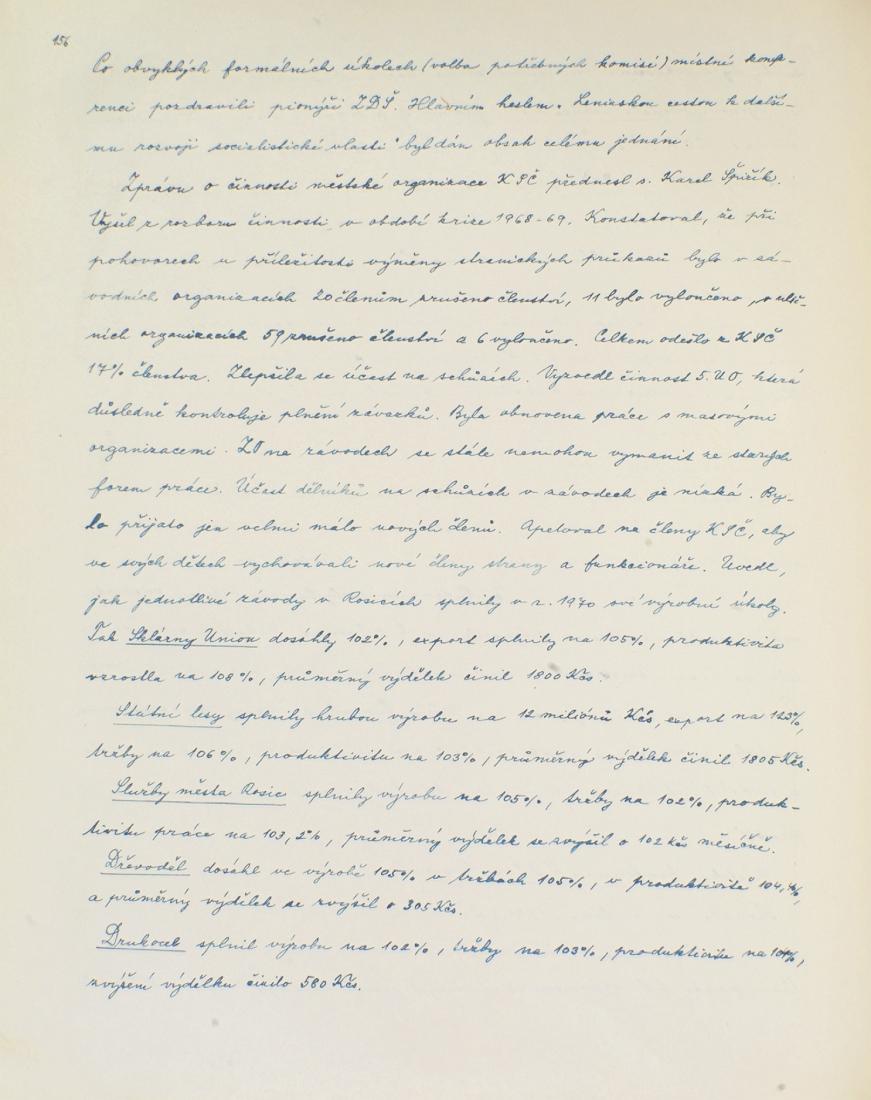 156
Po obvyklých formálních úkolech (volba potřebných komisí) místní konfe-
renci pozdravili pionýři ZDŠ. Hlavním heslem „Leninskou cestou k další-
mu rozvoji socialistické vlasti" byl dán obsah celému jednání.
Zprávu o činnosti městské organizace KSČ přednesl s. Karel Špiřík.
Vyšel z rozboru činnosti v období krize 1968-69. Konstatoval, že při
pohovorech u příležitosti výměny stranických průkazů bylo v zá-
vodních organizacích 20 členům zrušeno členství, 11 bylo vyloučeno, v ulič-
ních organizacích 59 zrušeno členství a 6 vyloučeno. Celkem odešlo z KSČ
17% členstva. Zlepšila se účast na schůzích. Vyzvedl činnost 5. UO, která
důsledně kontroluje plnění závazků. Byla obnovena práce s masovými
organizacemi. ZO na závodech se stále nemohou vymanit ze starých
forem práce. Účast dělníků na schůzích v závodech je nízká. By-
lo přijato jen velmi málo nových členů. Apeloval na členy KSČ, aby
ve svých dětech vychovávali nové členy strany a funkcionáře. Uvedl,
jak jednotlivé závody v Rosicích splnily v r. 1970 své výrobní úkoly.
Tak Sklárny Union dosáhly 102%, export splnily na 105%, produktivita
vzrostla na 108%, průměrný výdělek činil 1800 Kčs.
Státní lesy splnily hrubou výrobu na 12 miliónů Kčs, export na 123%,
tržby na 106%, produktivitu na 103%, průměrný výdělek činil 1805 Kčs.
Služby města Rosic splnily výrobu na 105%, tržby na 102%, produk-
tivitu práce na 103,2%, průměrný výdělek se zvýšil o 102 Kčs měsíčně.
Dřevoděl dosáhl ve výrobě 105% v tržbách 105%, v produktivitě
a průměrný výdělek se zvýšil o 305 Kčs.
Drukoceb splnil výrobu na 102%, tržby na 103%, produktivitu na
zvýšení výdělku činilo 580 Kčs.